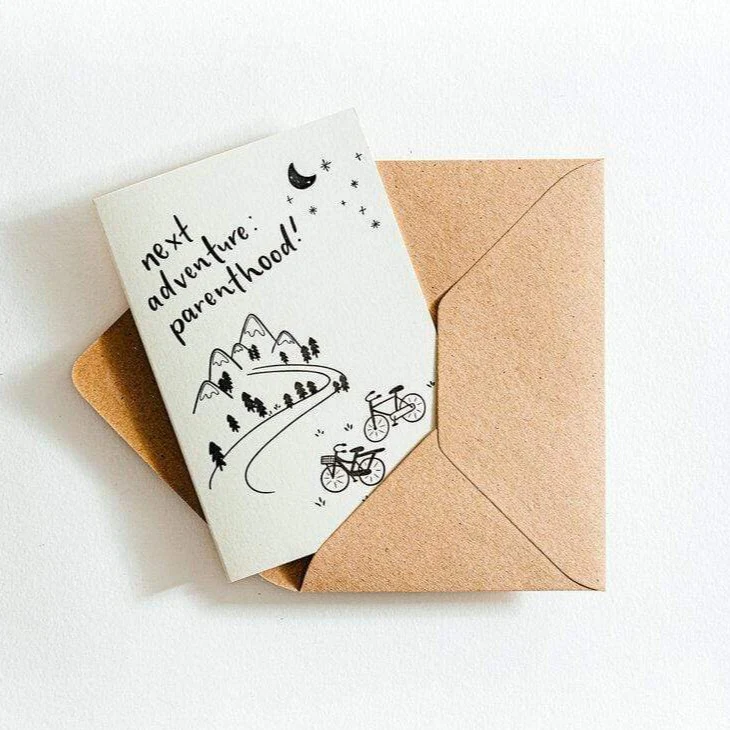 next
adventure:
parenthood!